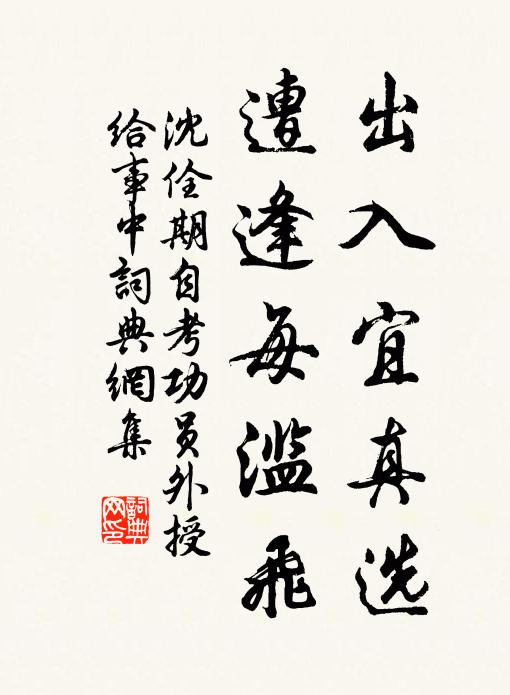 出入宜真选
遭逢每滥飛
沈佺期自考功员外授
给事中詞典網集
詞典
网印